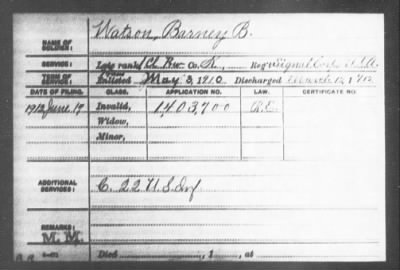 NAME OF SOLDIER: Watson, Barney B.
SERVICE: Late rank, 1 Cl. Pvt. Co. K, Reg't Signal Corps U.S.A.
TERM OF SERVICE: Enlisted May 3, 1910 Discharged March 12, 1912
DATE OF FILING. CLASS. APPLICATION NO. LAW. CERTIFICATE NO.
1912 June 17 Invalid, 1403700
Widow,
Minor,
ADDITIONAL SERVICES: C. 22 U.S. Inf
REMARKS: M. M.
Died , 1 , at